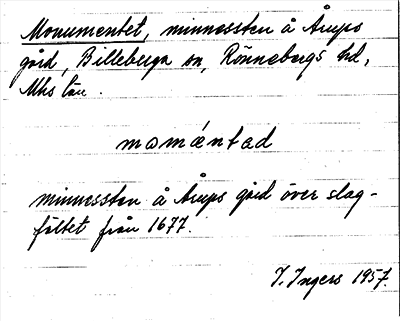 Monumentet, minnessten å Årups
gård, Billeberga sn, Rönnebergs hd,
Mhs län.
məmǽntəd
minnessten å Årups gård över slag-
fältet från 1677.
I. Ingers 1957.